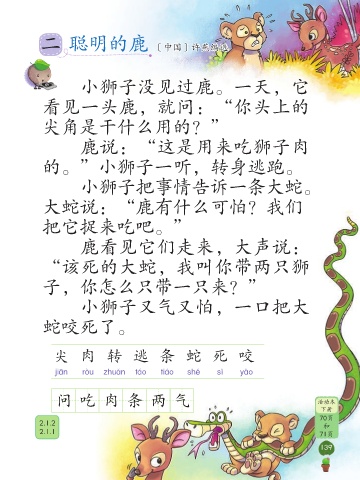 二 聪明的鹿 〔中国〕许燕编选
小狮子没见过鹿。一天，它
看见一头鹿，就问：“你头上的
尖角是干什么用的？”
鹿说：“这是用来吃狮子肉
的。”小狮子一听，转身逃跑。
小狮子把事情告诉一条大蛇。
大蛇说：“鹿有什么可怕？我们
把它捉来吃吧。”
鹿看见它们走来，大声说：
“该死的大蛇，我叫你带两只狮
子，你怎么只带一只来？”
小狮子又气又怕，一口把大
蛇咬死了。
尖 肉 转 逃 条 蛇 死 咬
jiān ròu zhuǎn táo tiáo shé sǐ yǎo
问 吃 肉 条 两 气
2.1.2
2.1.1
活动本
下册
70页
和
71页
139